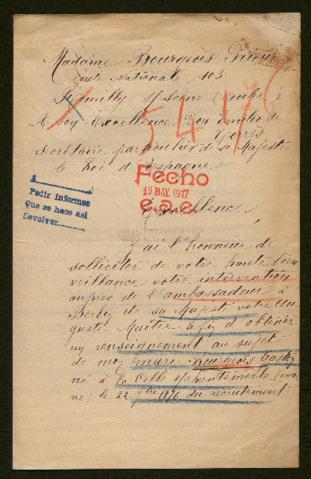 Madame Bourgeois
route Nationale 103
Romilly s/ Seine (Aube)
A Son Excellence Don Emilio de
Torres
Secrétaire particulier de sa Majesté
le Roi d'Espagne
54176
1
Pedir informes
Que se hace así
Devolver
Fecho
19 MAY. 1917
Excellence,
J'ai l'honneur de
solliciter de votre haute bien
veillance votre intervention
auprès de l'ambassadeur à
Berlin de sa Majesté votre Au
guste Maître afin d'obtenir
un renseignement au sujet
de mon mari Bourgeois
né à la Celle s/s Chantemerle (Mar
ne) le 22 1876 du recrutement